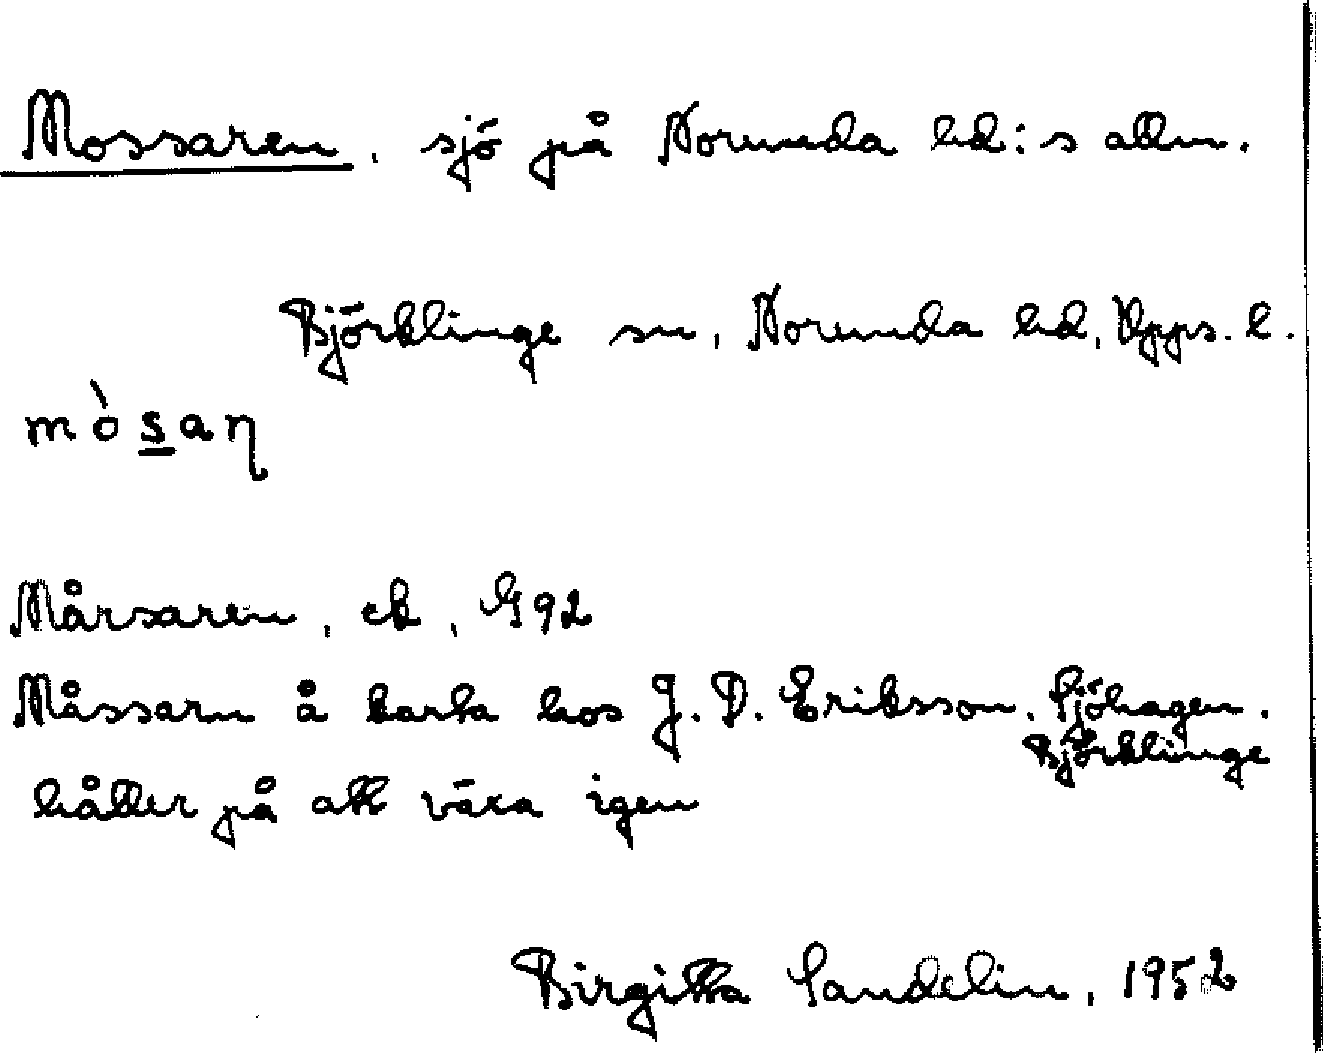 Mossaren, sjö på Norunda hd:s allm.
Björklinge sn, Norunda hd, Upps. l.
mò̀s̲aη
Mårsaren, ek, G92
Måssarn å karta hos J. D. Eriksson, Sjöhagen.
Björklinge
håller på att växa igen
Birgitta Sandelin, 1952